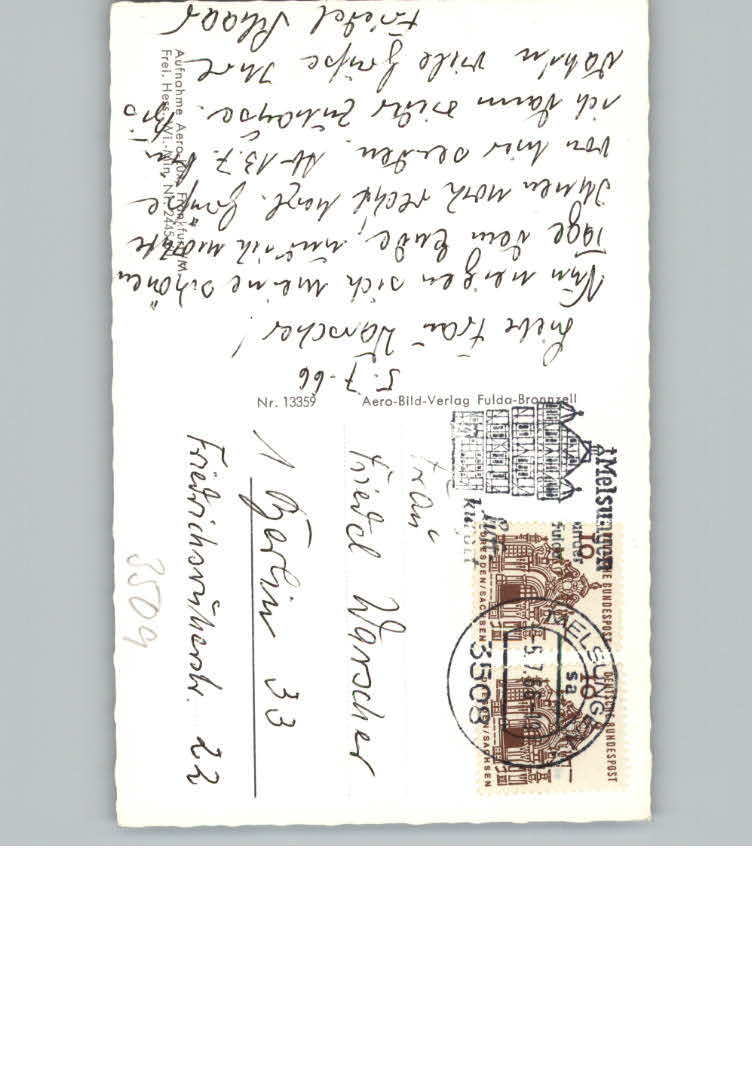 5.7.66
Liebe Frau Warscher!
Nun neigen sich meine schönen
Tage dem Ende, nur ich möchte
Ihnen noch recht herzl. Grüße
von hier senden. Ab 13.7. bin
ich dann wieder Zuhause. Bis
dahin viele Grüße Ihre
Friedel
Aufnahme Aero-Lux, Frankfurt/M.
Frei. Hess. Wi.-Min. Nr.
Nr. 13359
Aero-Bild-Verlag Fulda-Bronnzell
Frau
Friedel Warscher
1 Berlin 33
Friedrichsruherstr. 22
3509
Melsungen
Luft-
kurort
MELSUNGEN
5.7.66
3508
DEUTSCHE BUNDESPOST
10
DRESDEN/SACHSEN
DEUTSCHE BUNDESPOST
10
DRESDEN/SACHSEN